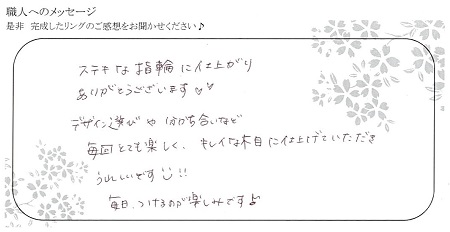 職人へのメッセージ
是非 完成したリングのご感想をお聞かせください♪
ステキな指輪に仕上がり
ありがとうございます♡♡
デザイン選びや打ち合いなど
毎回とても楽しく、キレイな木目に仕上げていただき
うれしいです!!
毎日、つけるのが楽しみです♪